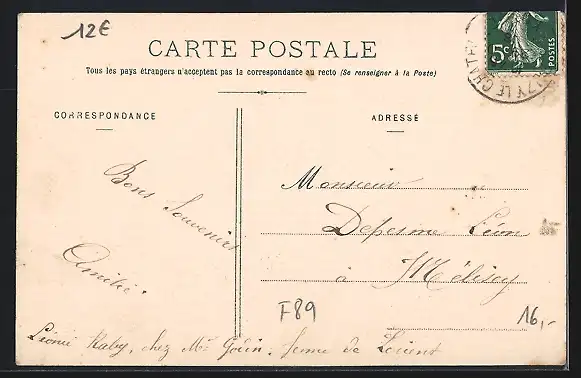 12€
CARTE POSTALE
Tous les pays étrangers n'acceptent pas la correspondance au recto (Se renseigner à la Poste)
5c
POSTES
CORRESPONDANCE
ADRESSÉ
Bons Souvenirs
Amitié.
Monsieur
Depesme Léon
à Mélisey
F89
16,-
Léonie chez Mr Gouin. ferme de Lorient